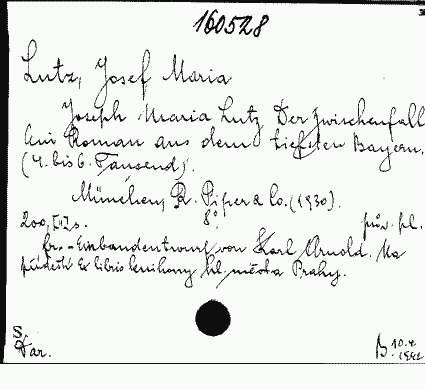 160528
Lutz, Josef Maria
Joseph Maria Lutz Der Zwischenfall
Ein Roman aus dem tiefsten Bayern.
(4. bis 6. Tausend).
München, R. Piper & Co. (1930).
200, [II] s. 8°. pův. pl.
br. - Einbandentwurf von Karl Arnold. Na
přídeští Ex libris knihovny hl. města Prahy.
S
Dar.
B. 10.4